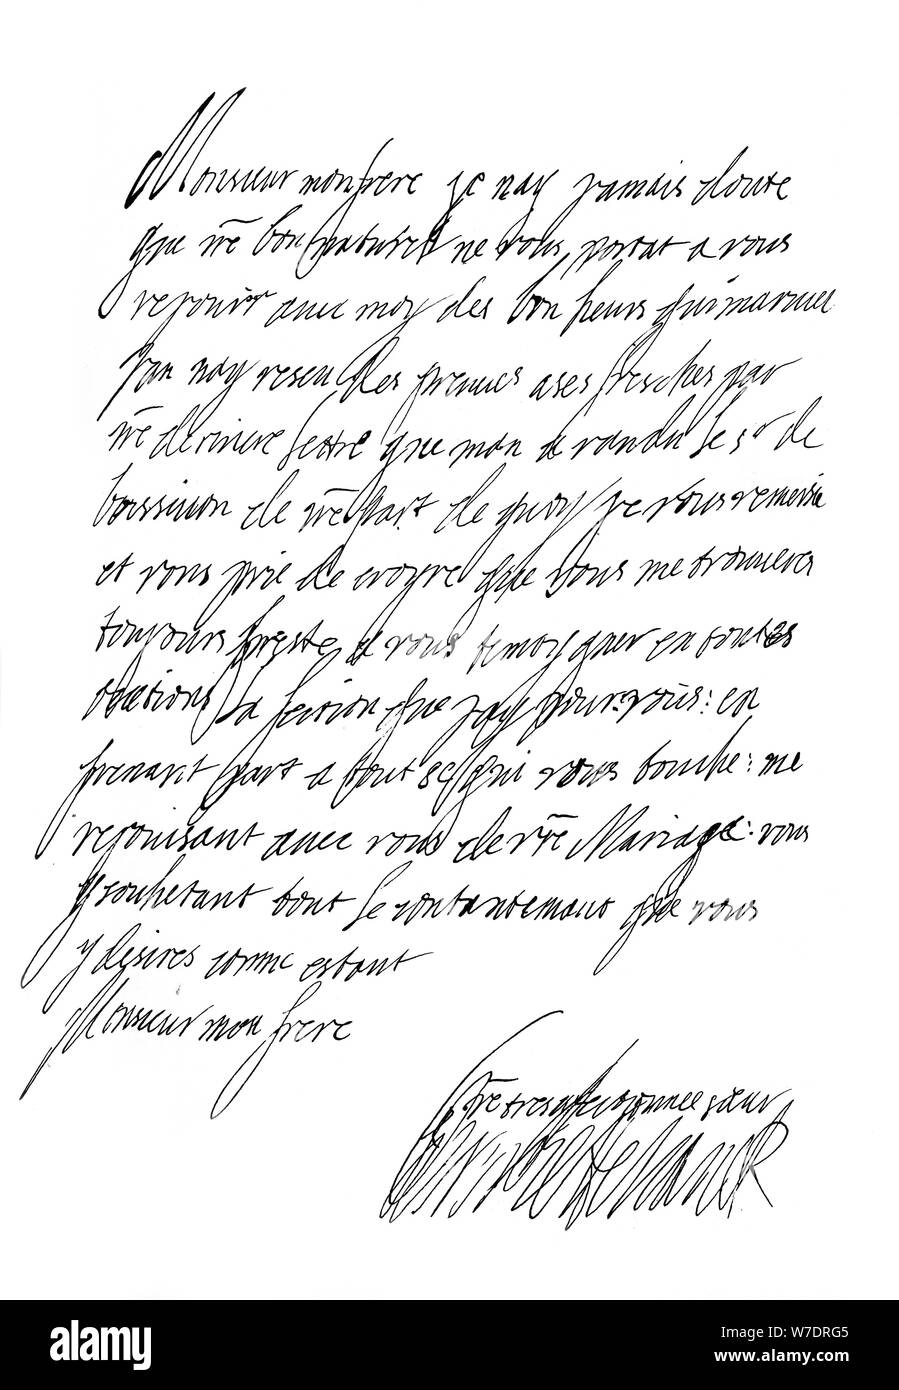 Monsieur mon frere je nay jamais doute
que vr̃e bon naturel ne vous portat a vous
rejouir avec moy des bon heurs qui marivee
Jan nay reseu des preuves ases fresches par
vr̃e derniere lettre que man a randu le sr de
boissinon de vr̃e part de quoy je vous remersie
et vous prie de croyre que vous me trouveres
toujours preste a vous temoygner en toutes
ocations la fection que jay pour vous: en
prenant part a tout se qui vous touche: me
rejouisant avec vous de vr̃e Mariage: vous
y souhetant tout le contantemant que vous
y desires comme estant
Monsieur mon frere
Vr̃e tres afectionnee sœur
alamy
alamy
Image ID: W7DRG5
www.alamy.com